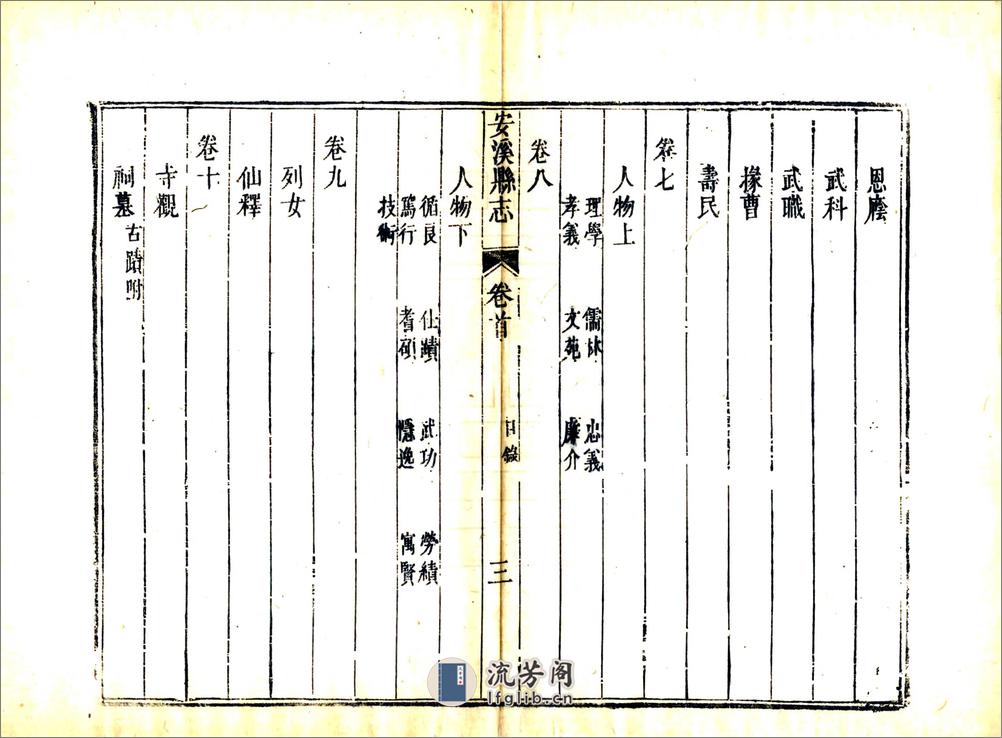 恩廕
武科
武職
掾曹
壽民
卷七
人物上
理學 儒林 忠義
孝義 文苑 廉介
卷八
安溪縣志 卷首 目錄 三
人物下
循良 仕蹟 武功 勞績
篤行 耆碩 隱逸 寓賢
技術
卷九
列女
仙釋
卷十
寺觀
祠墓 古蹟附
流芳阁
lfglib.cn